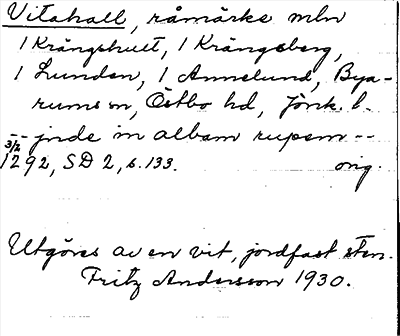 Vitahall, råmärke mln
1 Krängshult, 1 Krängsberg,
1 Lunden, 1 Annelund, Bya-
rums sn, Östbo hd, Jönk. l.
-- jnde in albam rupem --
3/2 1292, SD 2, s. 133. orig.
Utgöres av en vit, jordfast sten.
Fritz Andersson 1930.